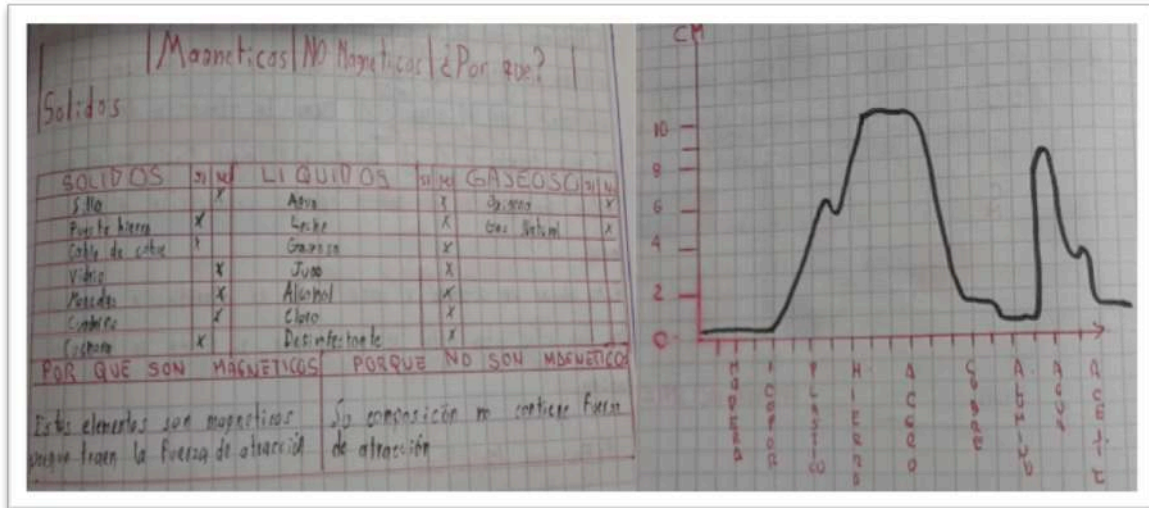 Magneticos NO Magneticos ¿Por que?
Solidos
SOLIDOS SI NO LIQUIDOS SI NO GASEOSO SI NO
Silla X Agua X Oxigeno X
Puerta hierro X Leche X Gas Natural X
Cable de cobre X Gaseosa X
Vidrio X Jugo X
Monedas X Alcohol X
X Cloro X
Cuchara X Desinfectante X
POR QUE SON MAGNETICOS PORQUE NO SON MAGNETICOS
Estos elementos son magneticos
porque traen la fuerza de atracción
Su composición no contiene fuerza
de atracción
CM
10
8
6
4
2
0
MADERA
ICOPOR
PLASTICO
HIERRO
ACERO
COBRE
AGUA
ACEITE